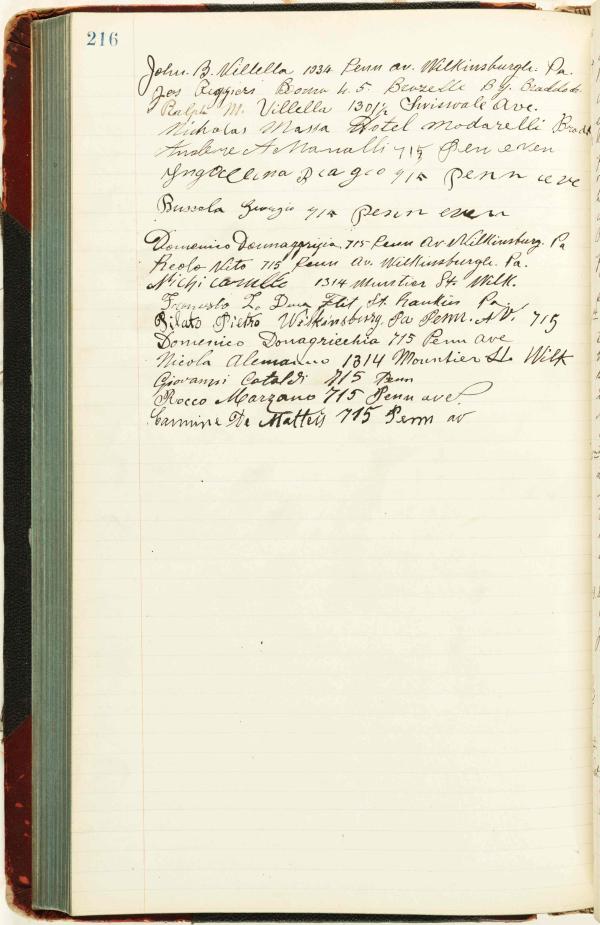 216
John. B. Villella 1034 Penn av. Wilkinsburgh. Pa.
Jos Room 45. By. Braddock
Ralph M. Villella 1301½ Swissvale Ave.
Nicholas Massa Hotel Modarelli Bradd
A Manalli 715 Pen even
Biagio 915 Penn eve
Bussola Giorgio 915 Penn even
Domenico Donnagrigia 715 Penn Av Wilkinsburg. Pa
Reolo Vito 715 Penn Av. Wilkinsburgh. Pa.
Nichi 1314 Munstier St. Wilk.
L. St. Rankin Pa
Pilato Pietro Wilkinsburg, Pa Penn. AV. 715
Domenico Donagricchia 715 Penn ave
Nicola Alemanno 1314 Mountier St. Wilk
Giovanni Cataldi 715 Penn
Rocco Marzano 715 Penn ave.
Carmine De Matteis 715 Penn av